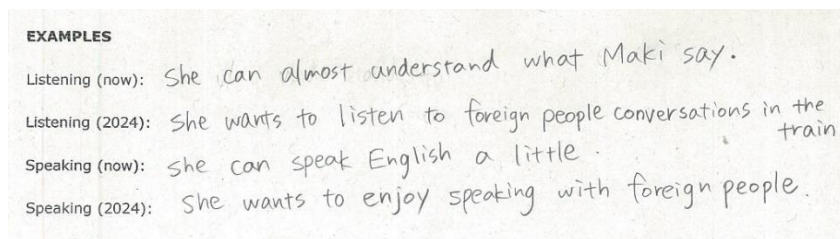 EXAMPLES
Listening (now): She can almost understand what Maki say.
Listening (2024): She wants to listen to foreign people conversations in the
train
Speaking (now): she can speak English a little.
Speaking (2024): She wants to enjoy speaking with foreign people.